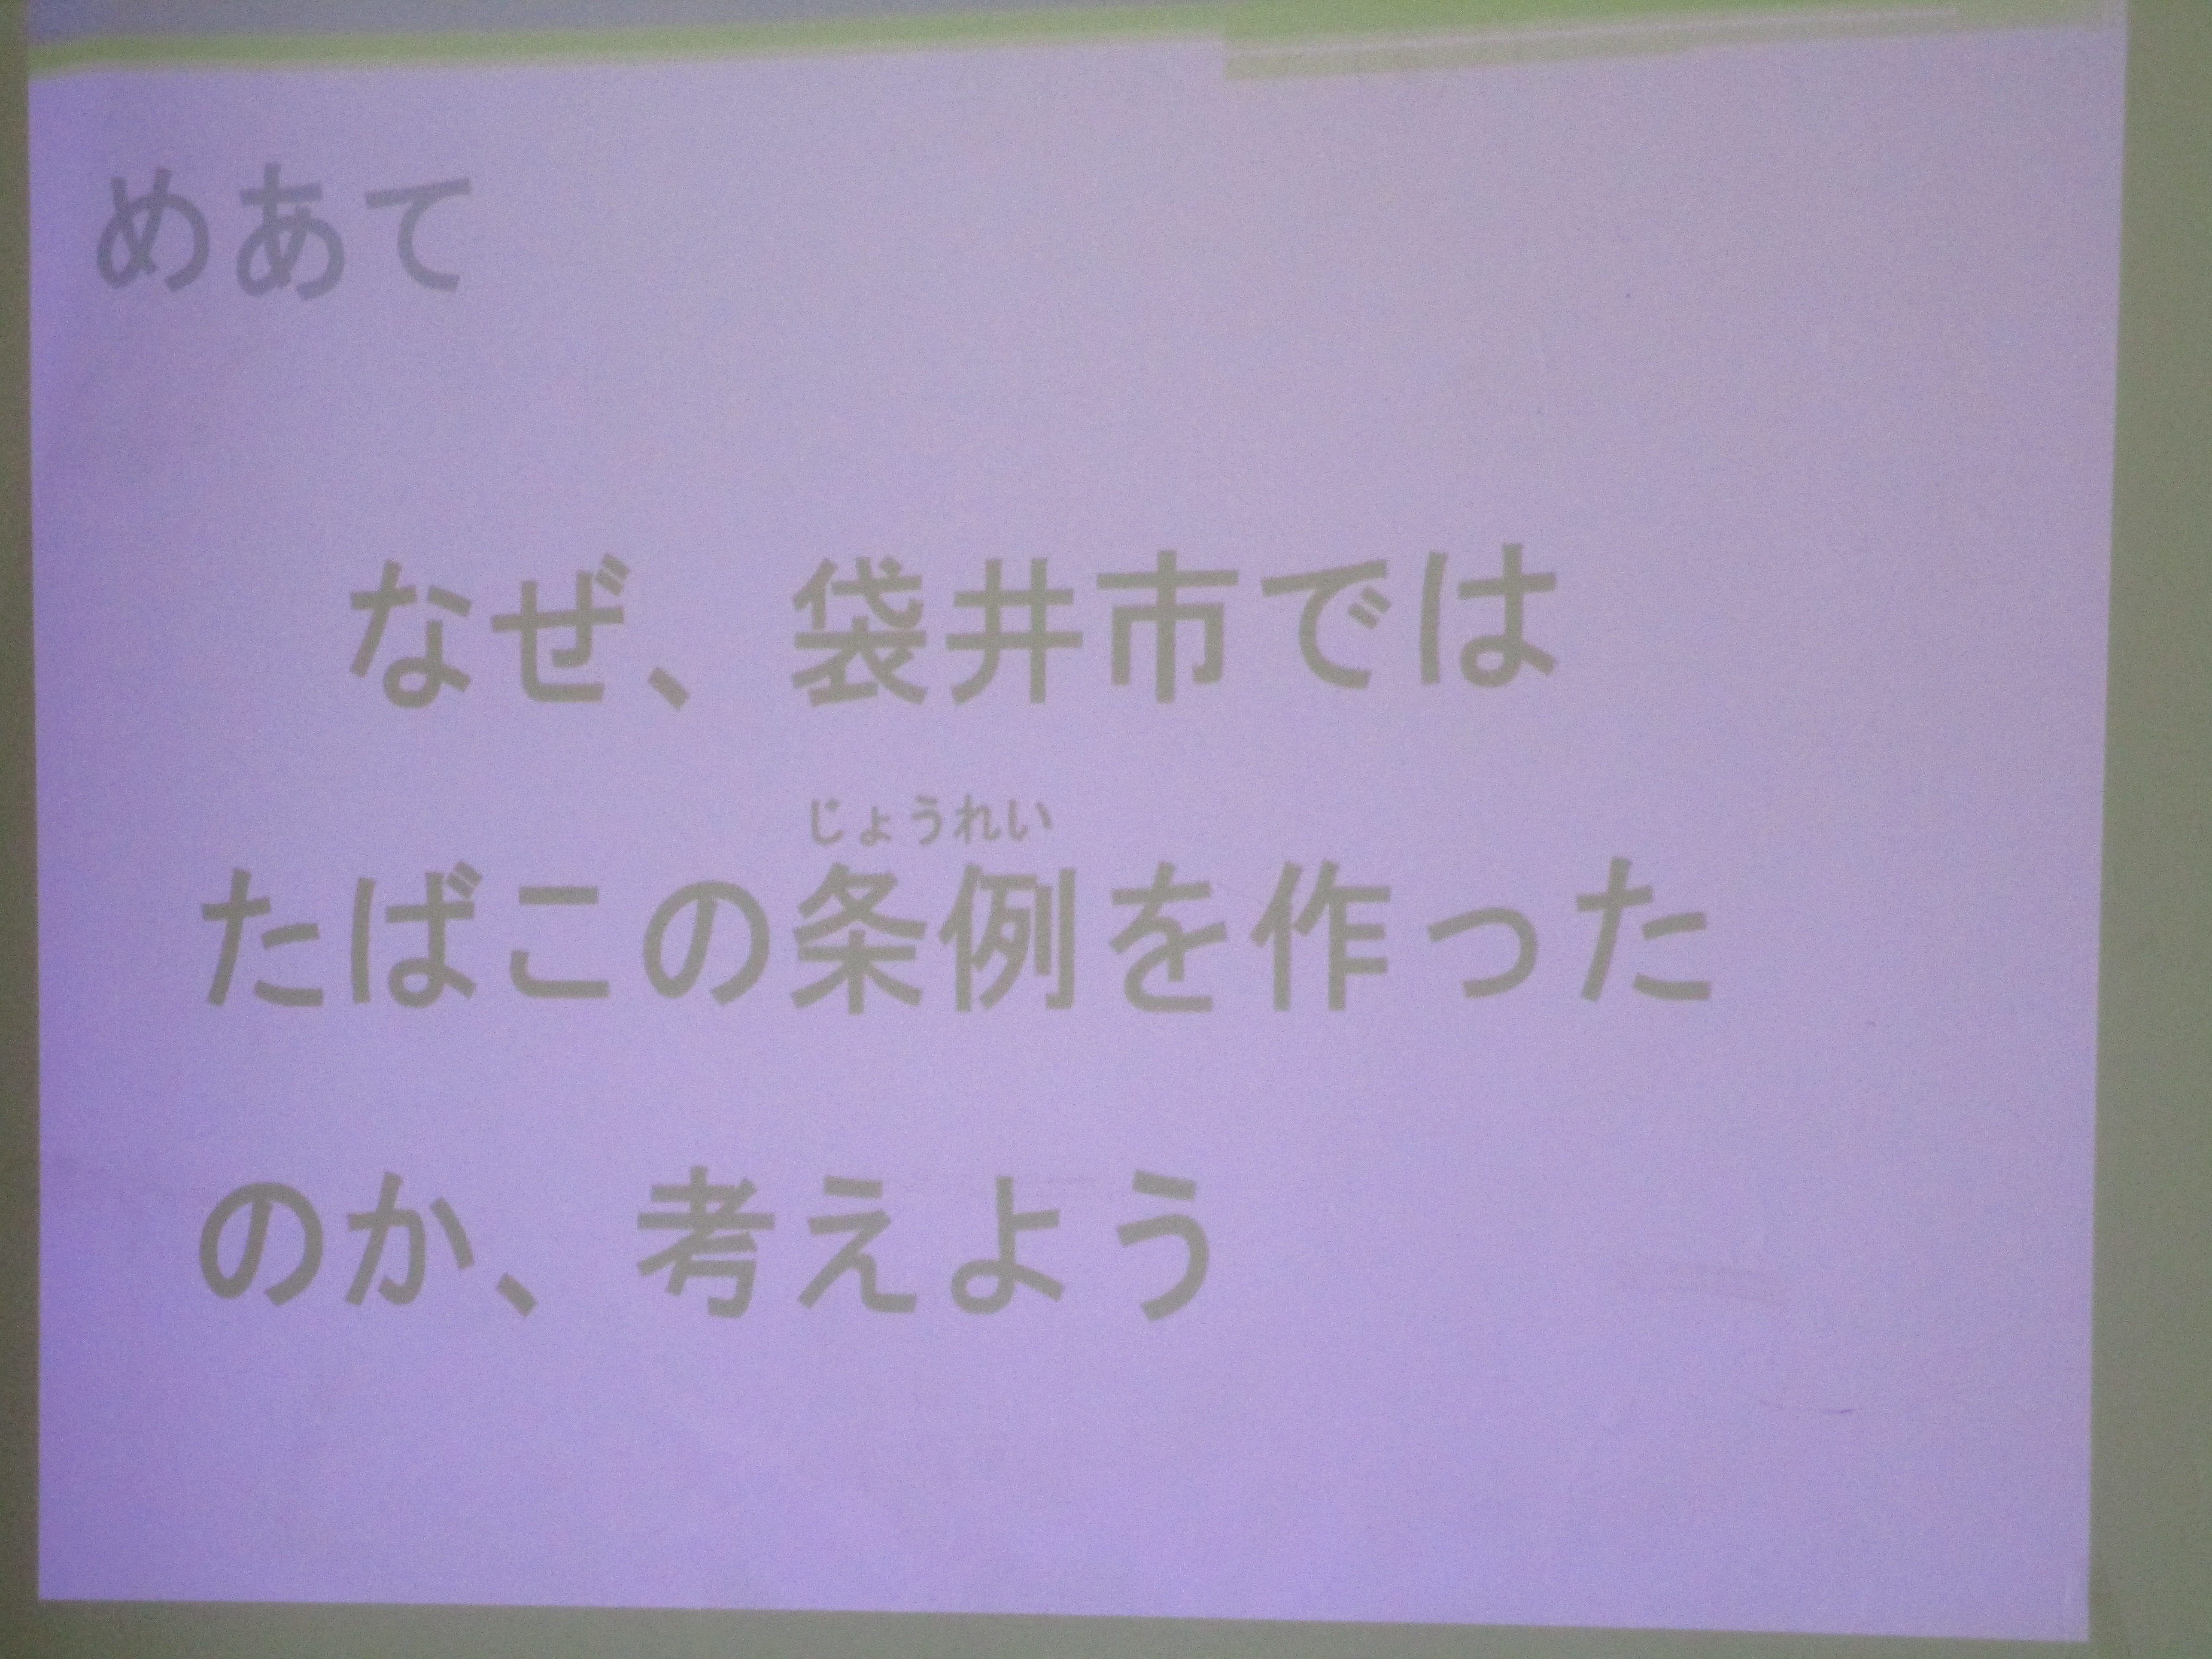 めあて
なぜ、袋井市では
じょうれい
たばこの条例を作った
のか、考えよう